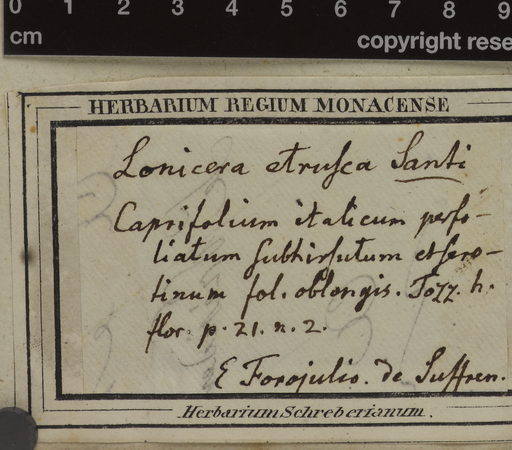 0 1 2 3 4 5 6 7 8 9
cm
copyright rese
HERBARIUM REGIUM MONACENSE
Lonicera etrusca Santi
Caprifolium italicum perfo-
liatum subhirsutum et sero-
tinum fol. oblongis. Tozz. h.
flor. p. 21. n. 2.
E Forojulio. de Suffren.
Herbarium Schreberianum.